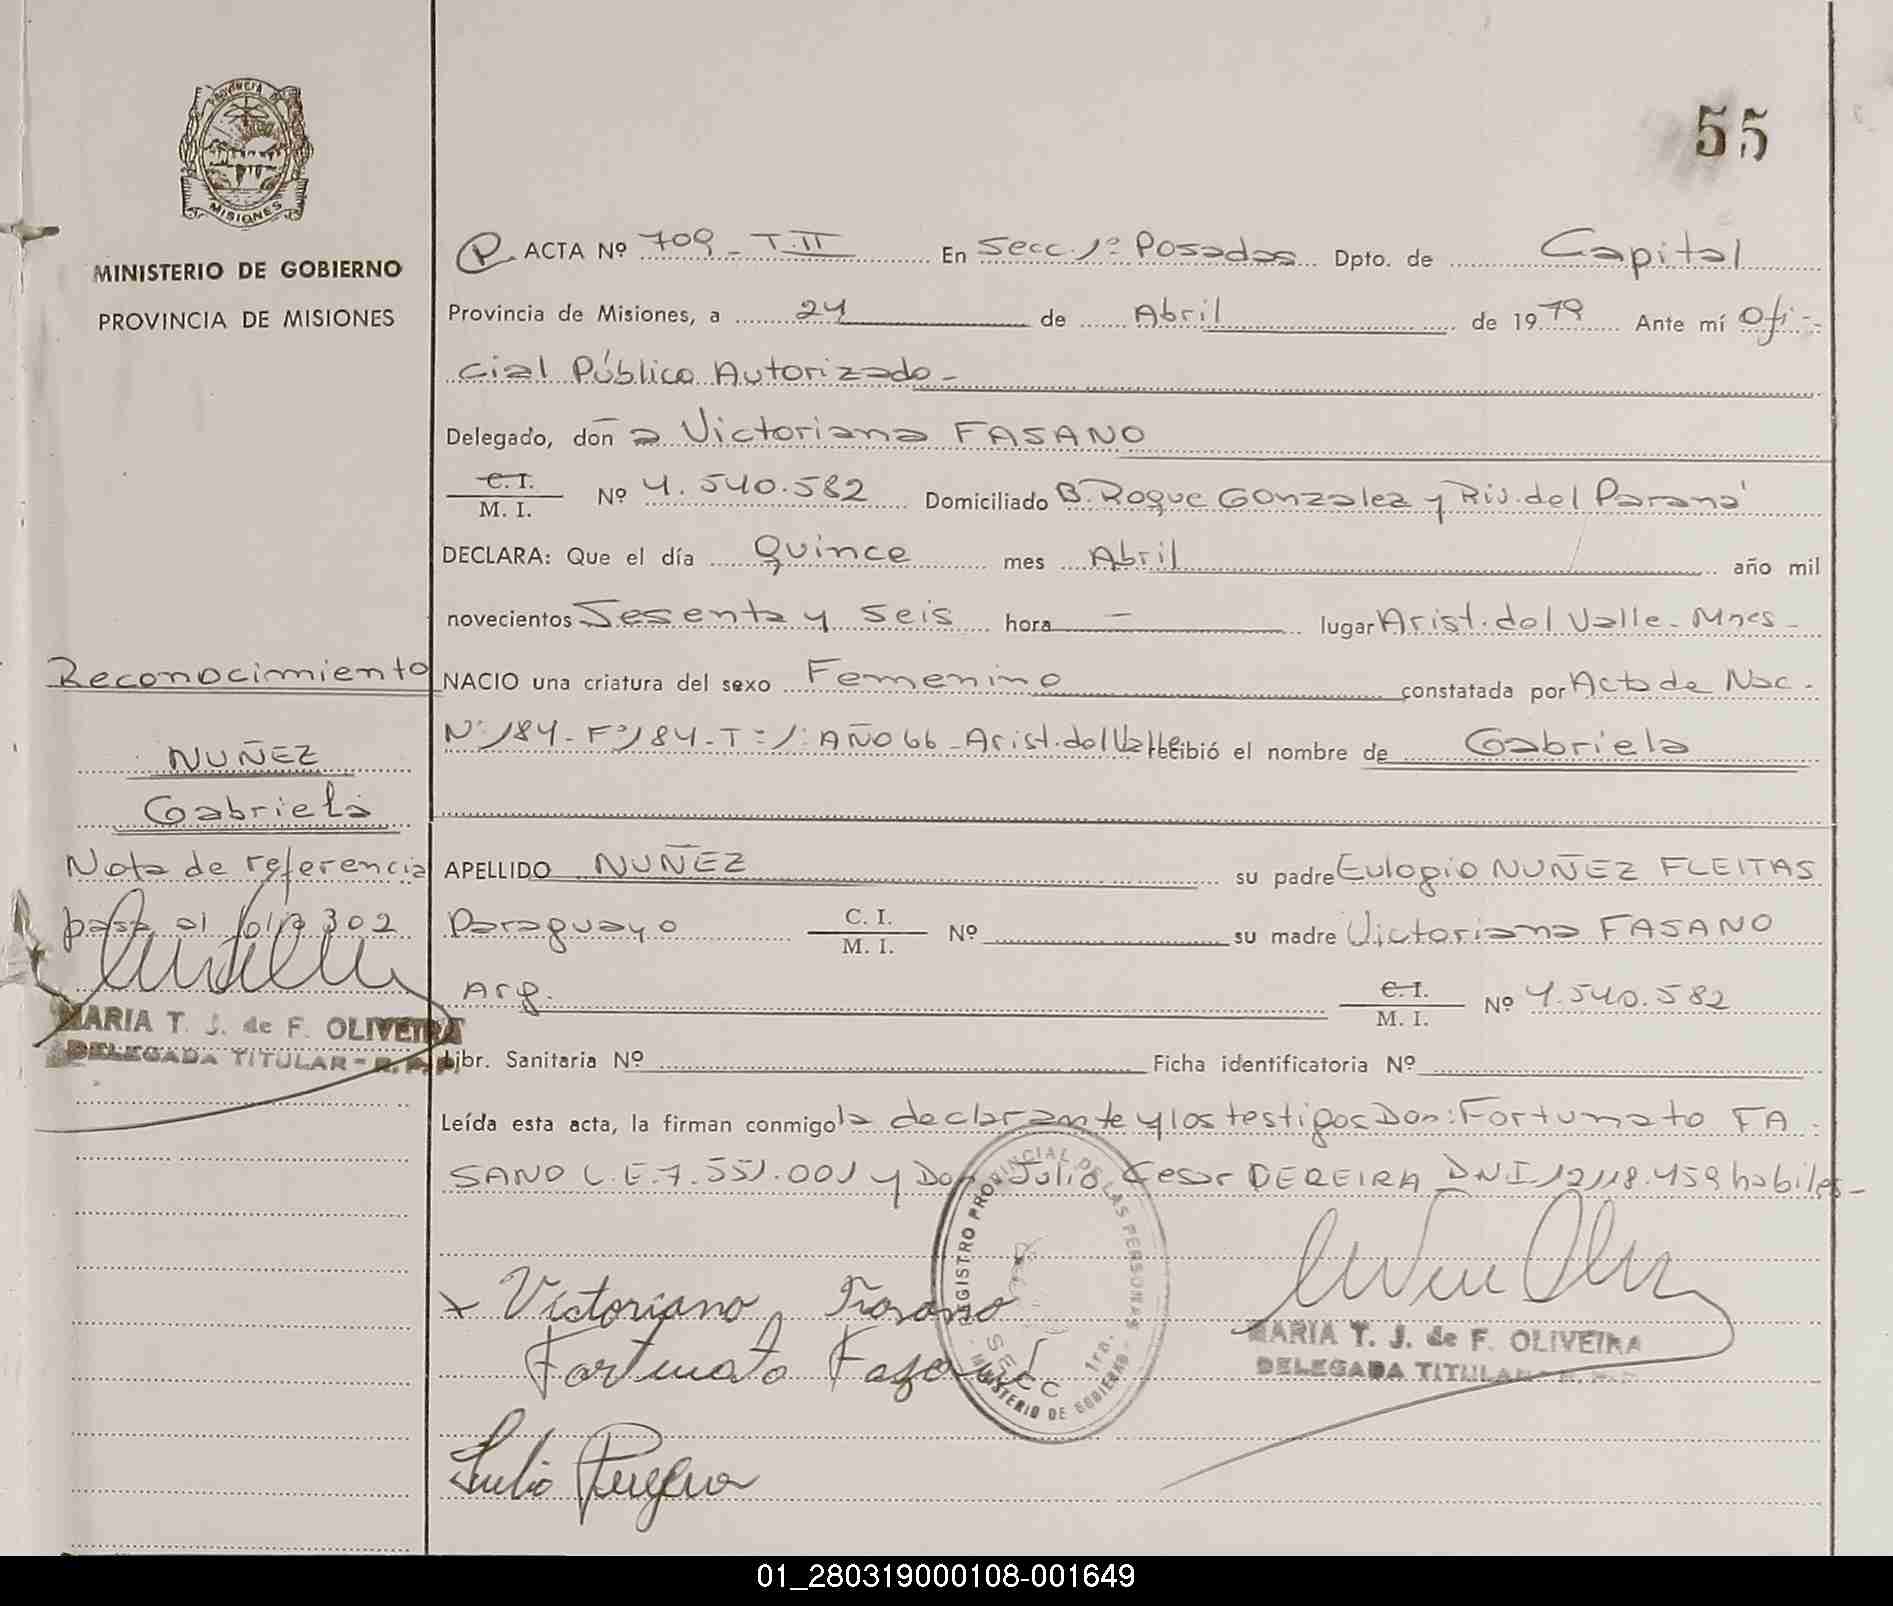 PROVINCIA DE
MISIONES
MINISTERIO DE GOBIERNO
PROVINCIA DE MISIONES
55
P. ACTA Nº 709 - T. II En Secc. 1º Posadas Dpto. de Capital
Provincia de Misiones, a 24 de Abril de 1979 Ante mí Ofi-
cial Público Autorizado -
Delegado, don a Victoriana FASANO
C. I. / M. I. Nº 4.540.582 Domiciliado B. Roque Gonzalez y Riv. del Paraná
DECLARA: Que el día quince mes Abril año mil
novecientos Sesenta y seis hora - lugar Arist. del Valle - Mnes -
Reconocimiento
NACIO una criatura del sexo Femenino constatada por Acta de Nac.
Nº 184 - Fº 184 - T: 1: AÑO 66 - Arist. del Valle recibió el nombre de Gabriela
NUÑEZ
Gabriela
Nota de referencia
pasa al folio 302
MARIA T. J. de F. OLIVEIRA
DELEGADA TITULAR - R. P. P.
APELLIDO NUÑEZ su padre Eulogio NUÑEZ FLEITAS
Paraguayo C. I. / M. I. Nº su madre Victoriana FASANO
Arg. C. I. / M. I. Nº 4.540.582
Libr. Sanitaria Nº Ficha identificatoria Nº
Leída esta acta, la firman conmigo la declarante y los testigos Don: Fortunato FA
SANO L.E. 7.551.001 y Don Julio Cesar PEREIRA DNI 12.118.459 habiles -
REGISTRO PROVINCIAL DE LAS PERSONAS
SECC 1ra.
MINISTERIO DE GOBIERNO
x Victoriano Fasano
Fortunato Fasano
Julio Pereira
MARIA T. J. de F. OLIVEIRA
DELEGADA TITULAR - R. P. P.
01_280319000108-001649